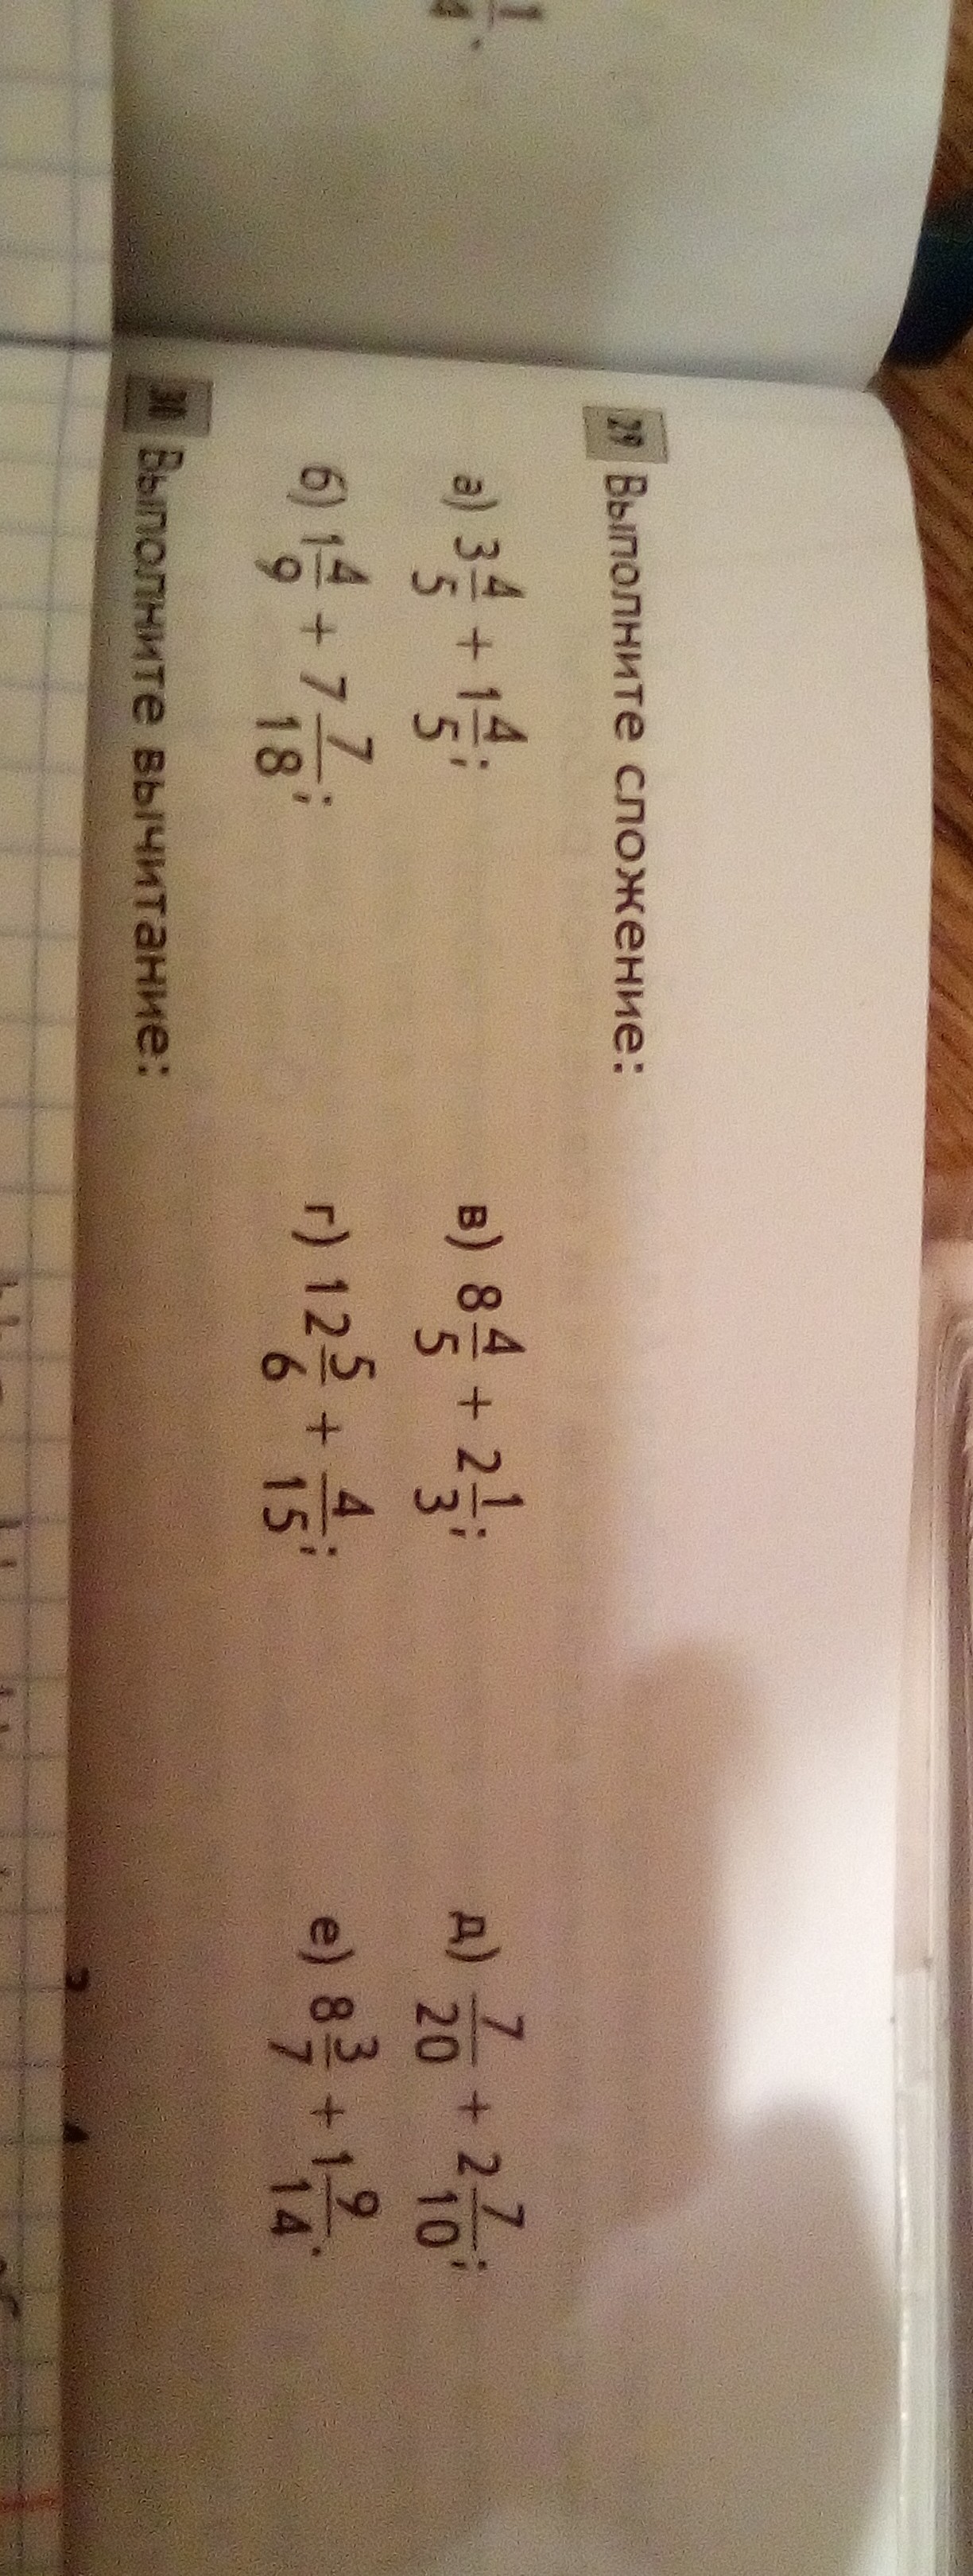 1/4.
29 Выполните сложение:
а) 3 4/5 + 1 4/5; в) 8 4/5 + 2 1/3; д) 7/20 + 2 7/10;
б) 1 4/9 + 7 7/18; г) 12 5/6 + 4/15; е) 8 3/7 + 1 9/14.
30 Выполните вычитание: